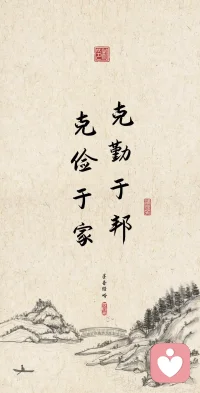 克勤于邦
克俭于家